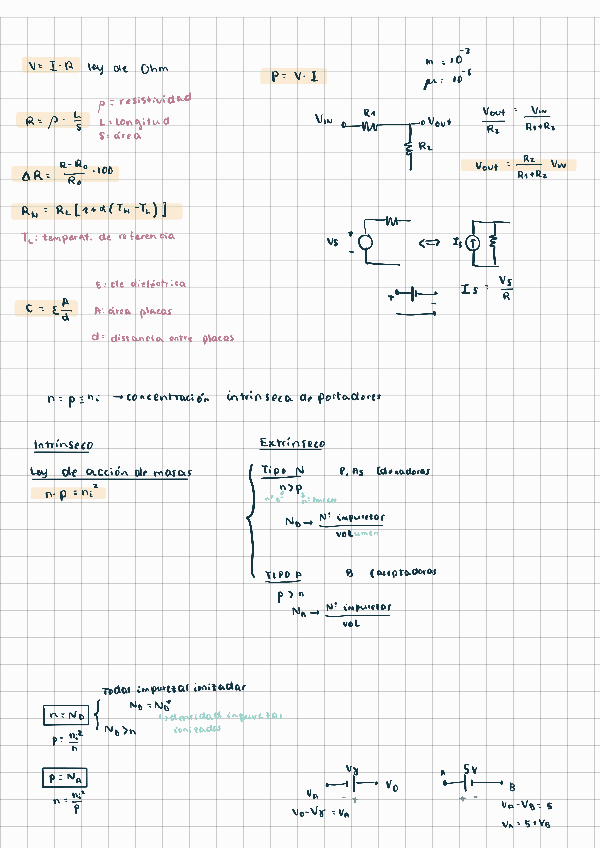 V = I · R ley de Ohm
P = V · I
m = 10⁻³
µ = 10⁻⁶
R = ρ · L/S
ρ = resistividad
L = longitud
S: área
VIN R1 Vout
R2
Vout/R2 = VIN/(R1+R2)
Vout = R2/(R1+R2) VIN
ΔR = (R-R0)/R0 · 100
RH = RL [1+α(TH-TL)]
TL: temperat. de referencia
Vs + - <=> Is
Is = Vs/R
+ -
C = ε A/d
ε: cte dieléctrica
A: área placas
d: distancia entre placas
n = p = ni → concentración intrínseca de portadores
Intrínseco
Ley de acción de masas
n · p = ni²
Extrínseco
TIPO N P, As (donadoras
n > p
ND → Nº impurezas/volumen
TIPO P B (aceptadoras
p > n
NA → Nº impurezas/vol
Todas impurezas ionizadas
n = ND
ND = ND⁺
densidad impurezas
ionizadas
p = ni²/n
ND > n
p = NA
n = ni²/p
Vγ
VA VD
- +
VD - Vγ = VA
A 5V B
+ -
VA - VB = 5
VA = 5 + VB